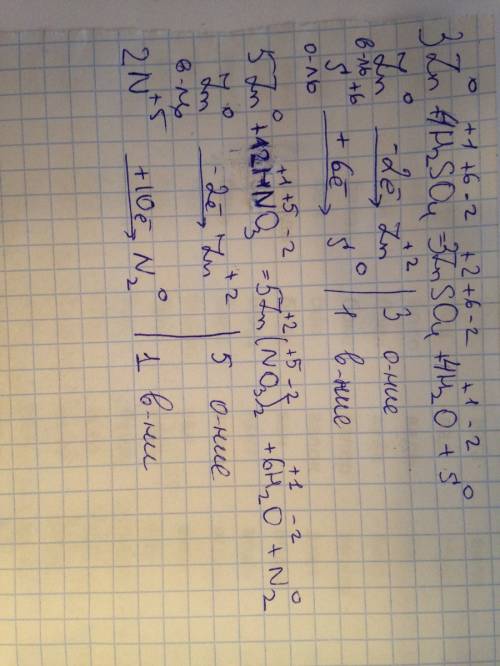 3Zn⁰ + 4H₂⁺¹S⁺⁶O₄⁻² = 3Zn⁺²S⁺⁶O₄⁻² + 4H₂⁺¹O⁻² + S⁰
Zn⁰ -2ē → Zn⁺² | 3 о-ние
в-ль
S⁺⁶ +6ē → S⁰ | 1 в-ние
о-ль
5Zn⁰ + 12H⁺¹N⁺⁵O₃⁻² = 5Zn⁺²(N⁺⁵O₃⁻²)₂ + 6H₂⁺¹O⁻² + N₂⁰
Zn⁰ -2ē → Zn⁺² | 5 о-ние
в-ль
2N⁺⁵ +10ē → N₂⁰ | 1 в-ние